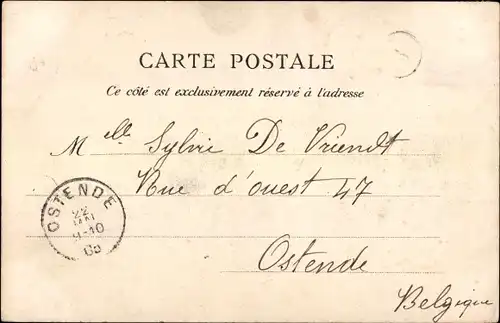 CARTE POSTALE
Ce côté est exclusivement réservé à l'adresse
Mlle Sylvie De Vriendt
Rue d'ouest 47
Ostende
Belgique
OSTENDE
22
MAI
9-10